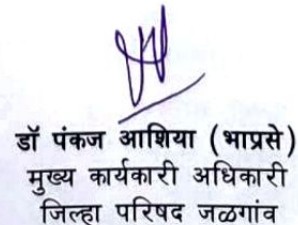 डॉ पंकज आशिया (भाप्रसे)
मुख्य कार्यकारी अधिकारी
जिल्हा परिषद जळगांव